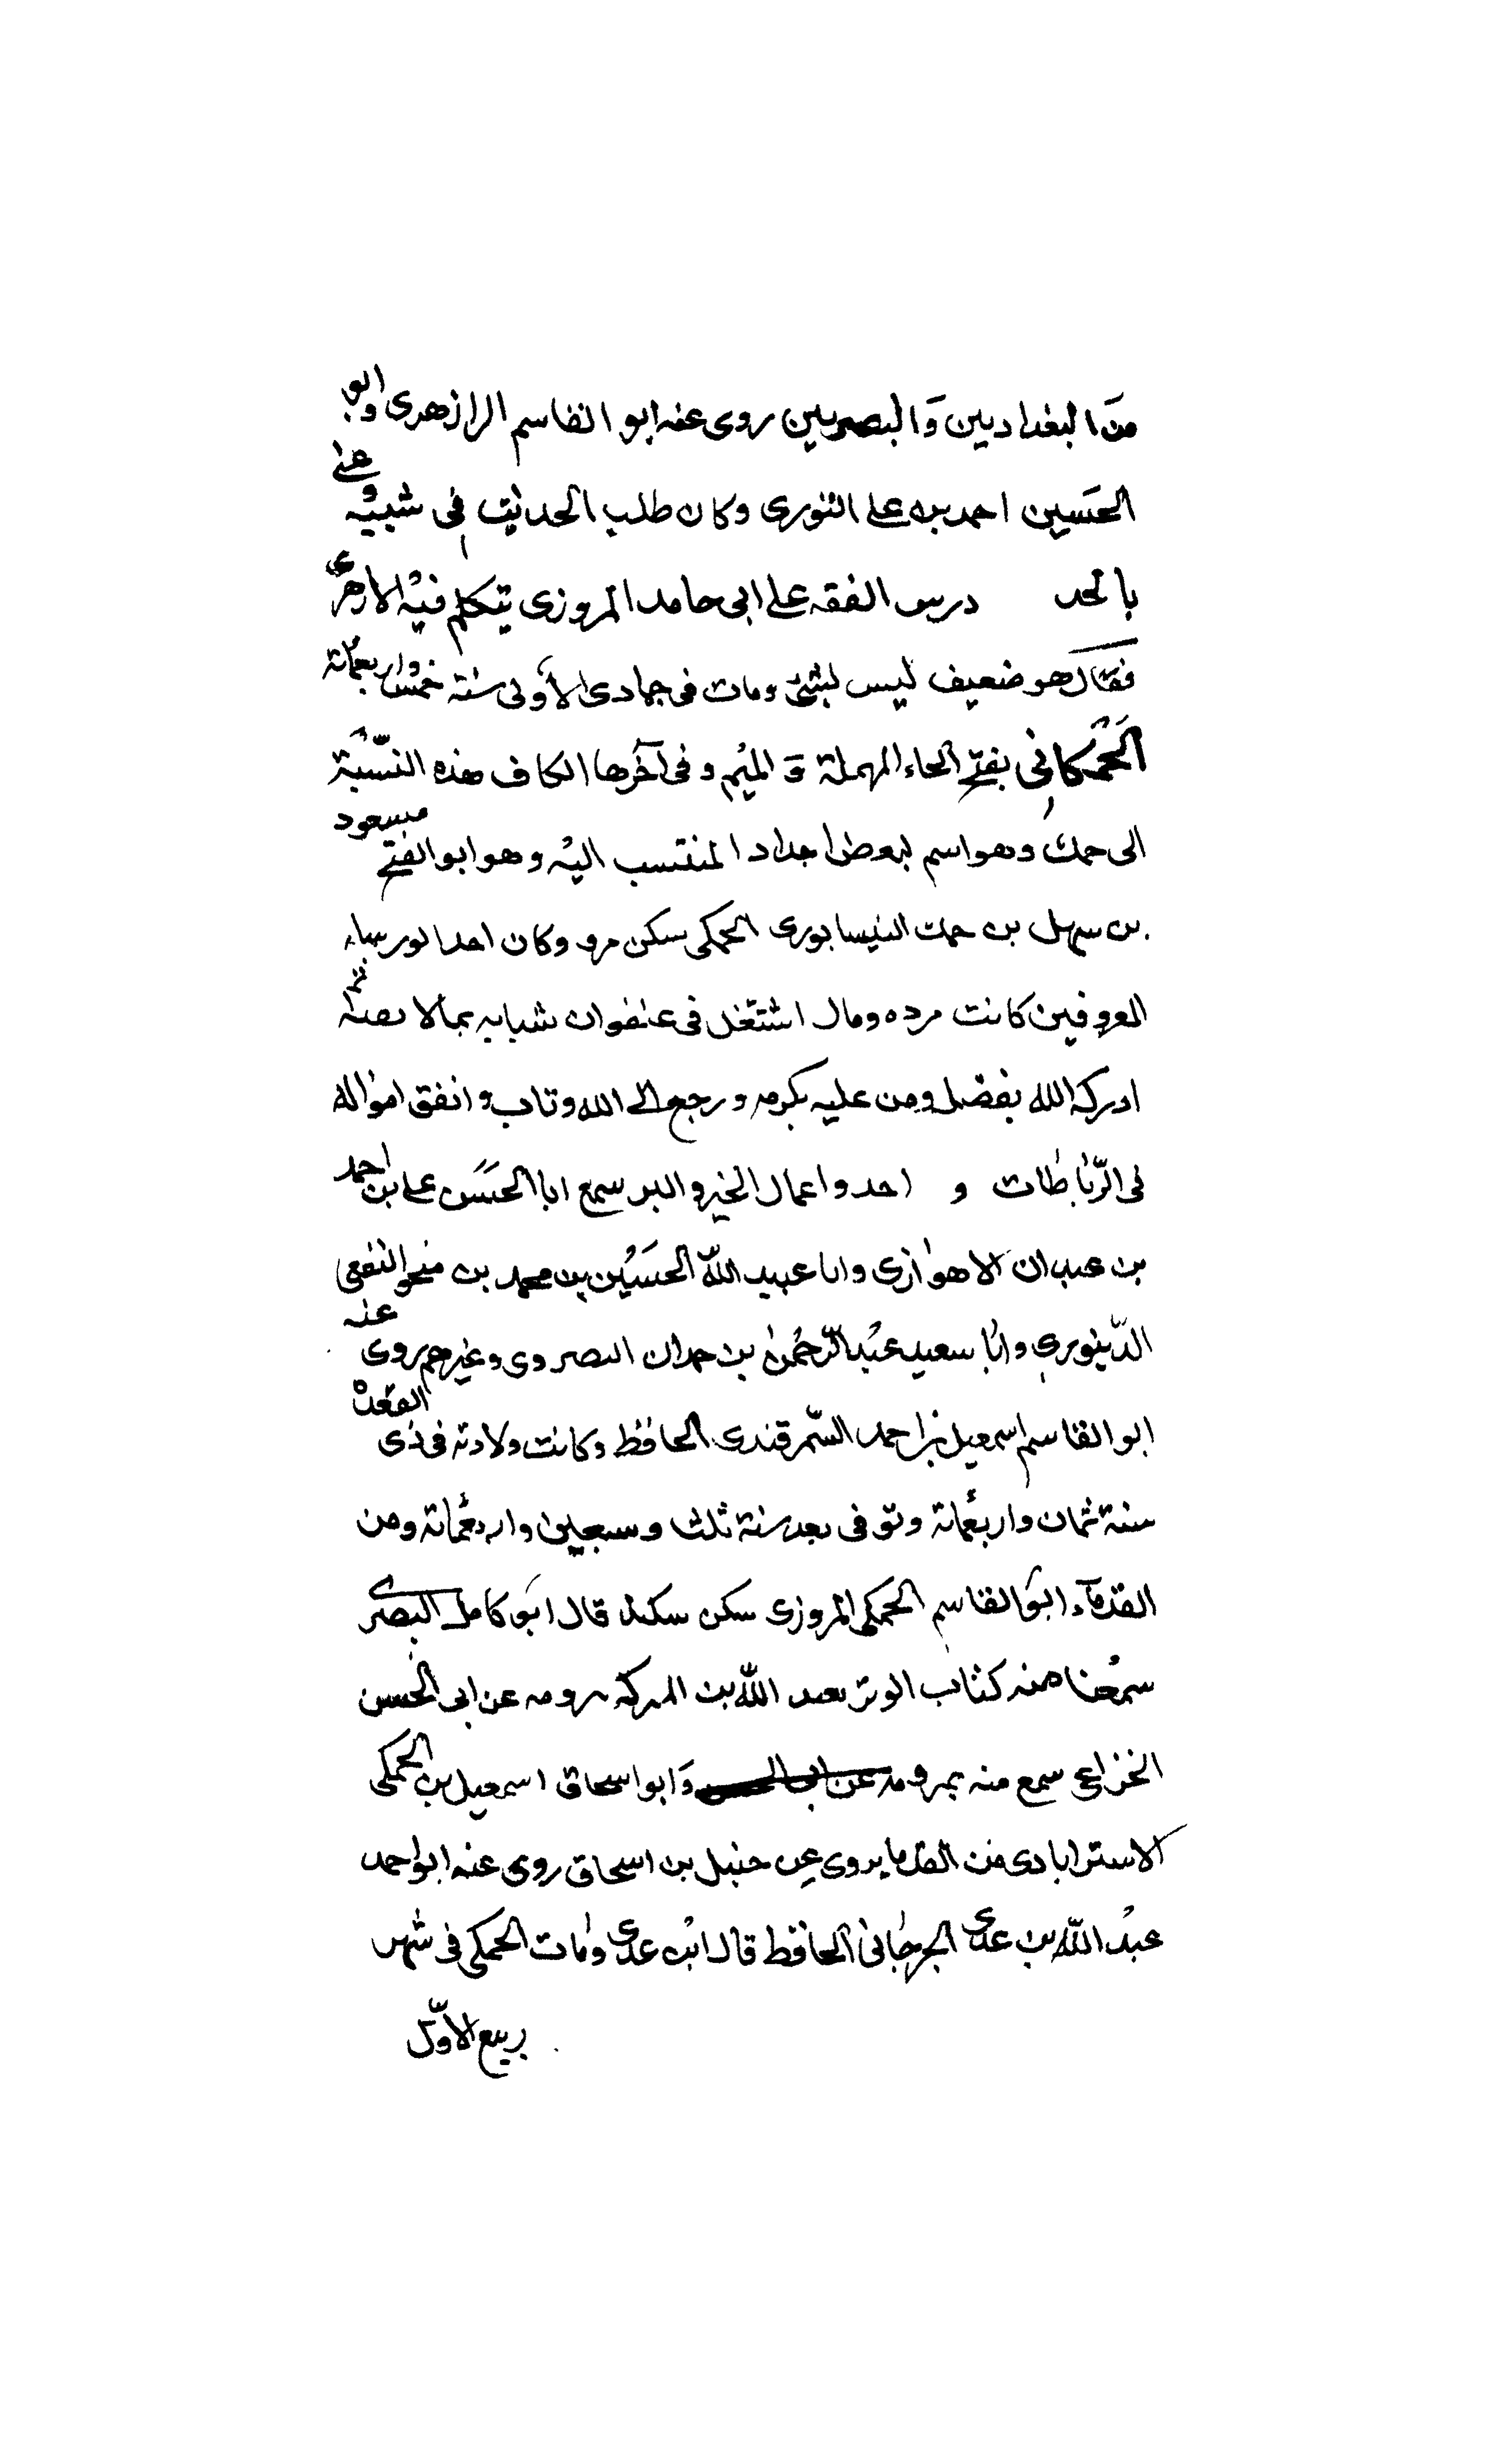 من البغداديين وَالبصريين روى عنه ابو القاسم الرازهرى وابو
الحَسين احمد بن على التورى وكان طلب الحديث فى شبيبته وعلى
بالحد درس الفقه على ابى حامد المروزى يتكلم فيه الازهرى
فقال هو ضعيف ليس بشئ ومات فى جمادى الأولى سنة خمس واربعمائة
الحَمَكانِى بفتح الحاء المهملة وَ الميم وفى آخرها الكاف هذه النّسبة
الى حمك وهو اسم لبعض اجداد المنتسب اليه وهو ابو الفتح مسعود
بن سهل بن حمك النيسابورى الحمكى سكن مرو وكان احد
المعروفين كانت مرده ومال اشتغل فى عنفوان شبابه بما لا
ادركه الله بفضله ومن عليه بكرمه ورجع الى الله وتاب وانفق امواله
فى الرّباطات و احد واعمال الخير والبر سمع ابا الحَسَن على بن احمد
بن عبدان الاهوازى وابا عبيد اللّه الحسَين بن محمد بن منجو
الدّينورى وابَا سعيد عبْد الرّحمٰن بن حمدان النصروى وغيرهم روى عنه
ابو القاسم اسمعيل بن احمد السّمرقندى الحافظ وكانت ولادته فى ذى القعدة
سنة ثمان واربعمائة وتوفى بعد سنة ثلث وسبعين واربعمائة ومن
القدمآء ابوَ القاسم الحمكى المروزى سكن سكند قال ابَو كامل البصرى
سمعنا منه كتاب الوتر بعبد اللّه بن عن ابى الحسن
الخزاعى سمع منه بمرو عن ابى الحسن وَابو اسحاق اسمعيل بن الحمكى
الاسترابادى من القدما يروى عن حنبل بن اسحاق روى عنه ابو احمد
عبْد اللّه بن عدى الجرجانى الحافظ قال ابن عدى ومات الحمكى فى شهر
ربيع الاوّل